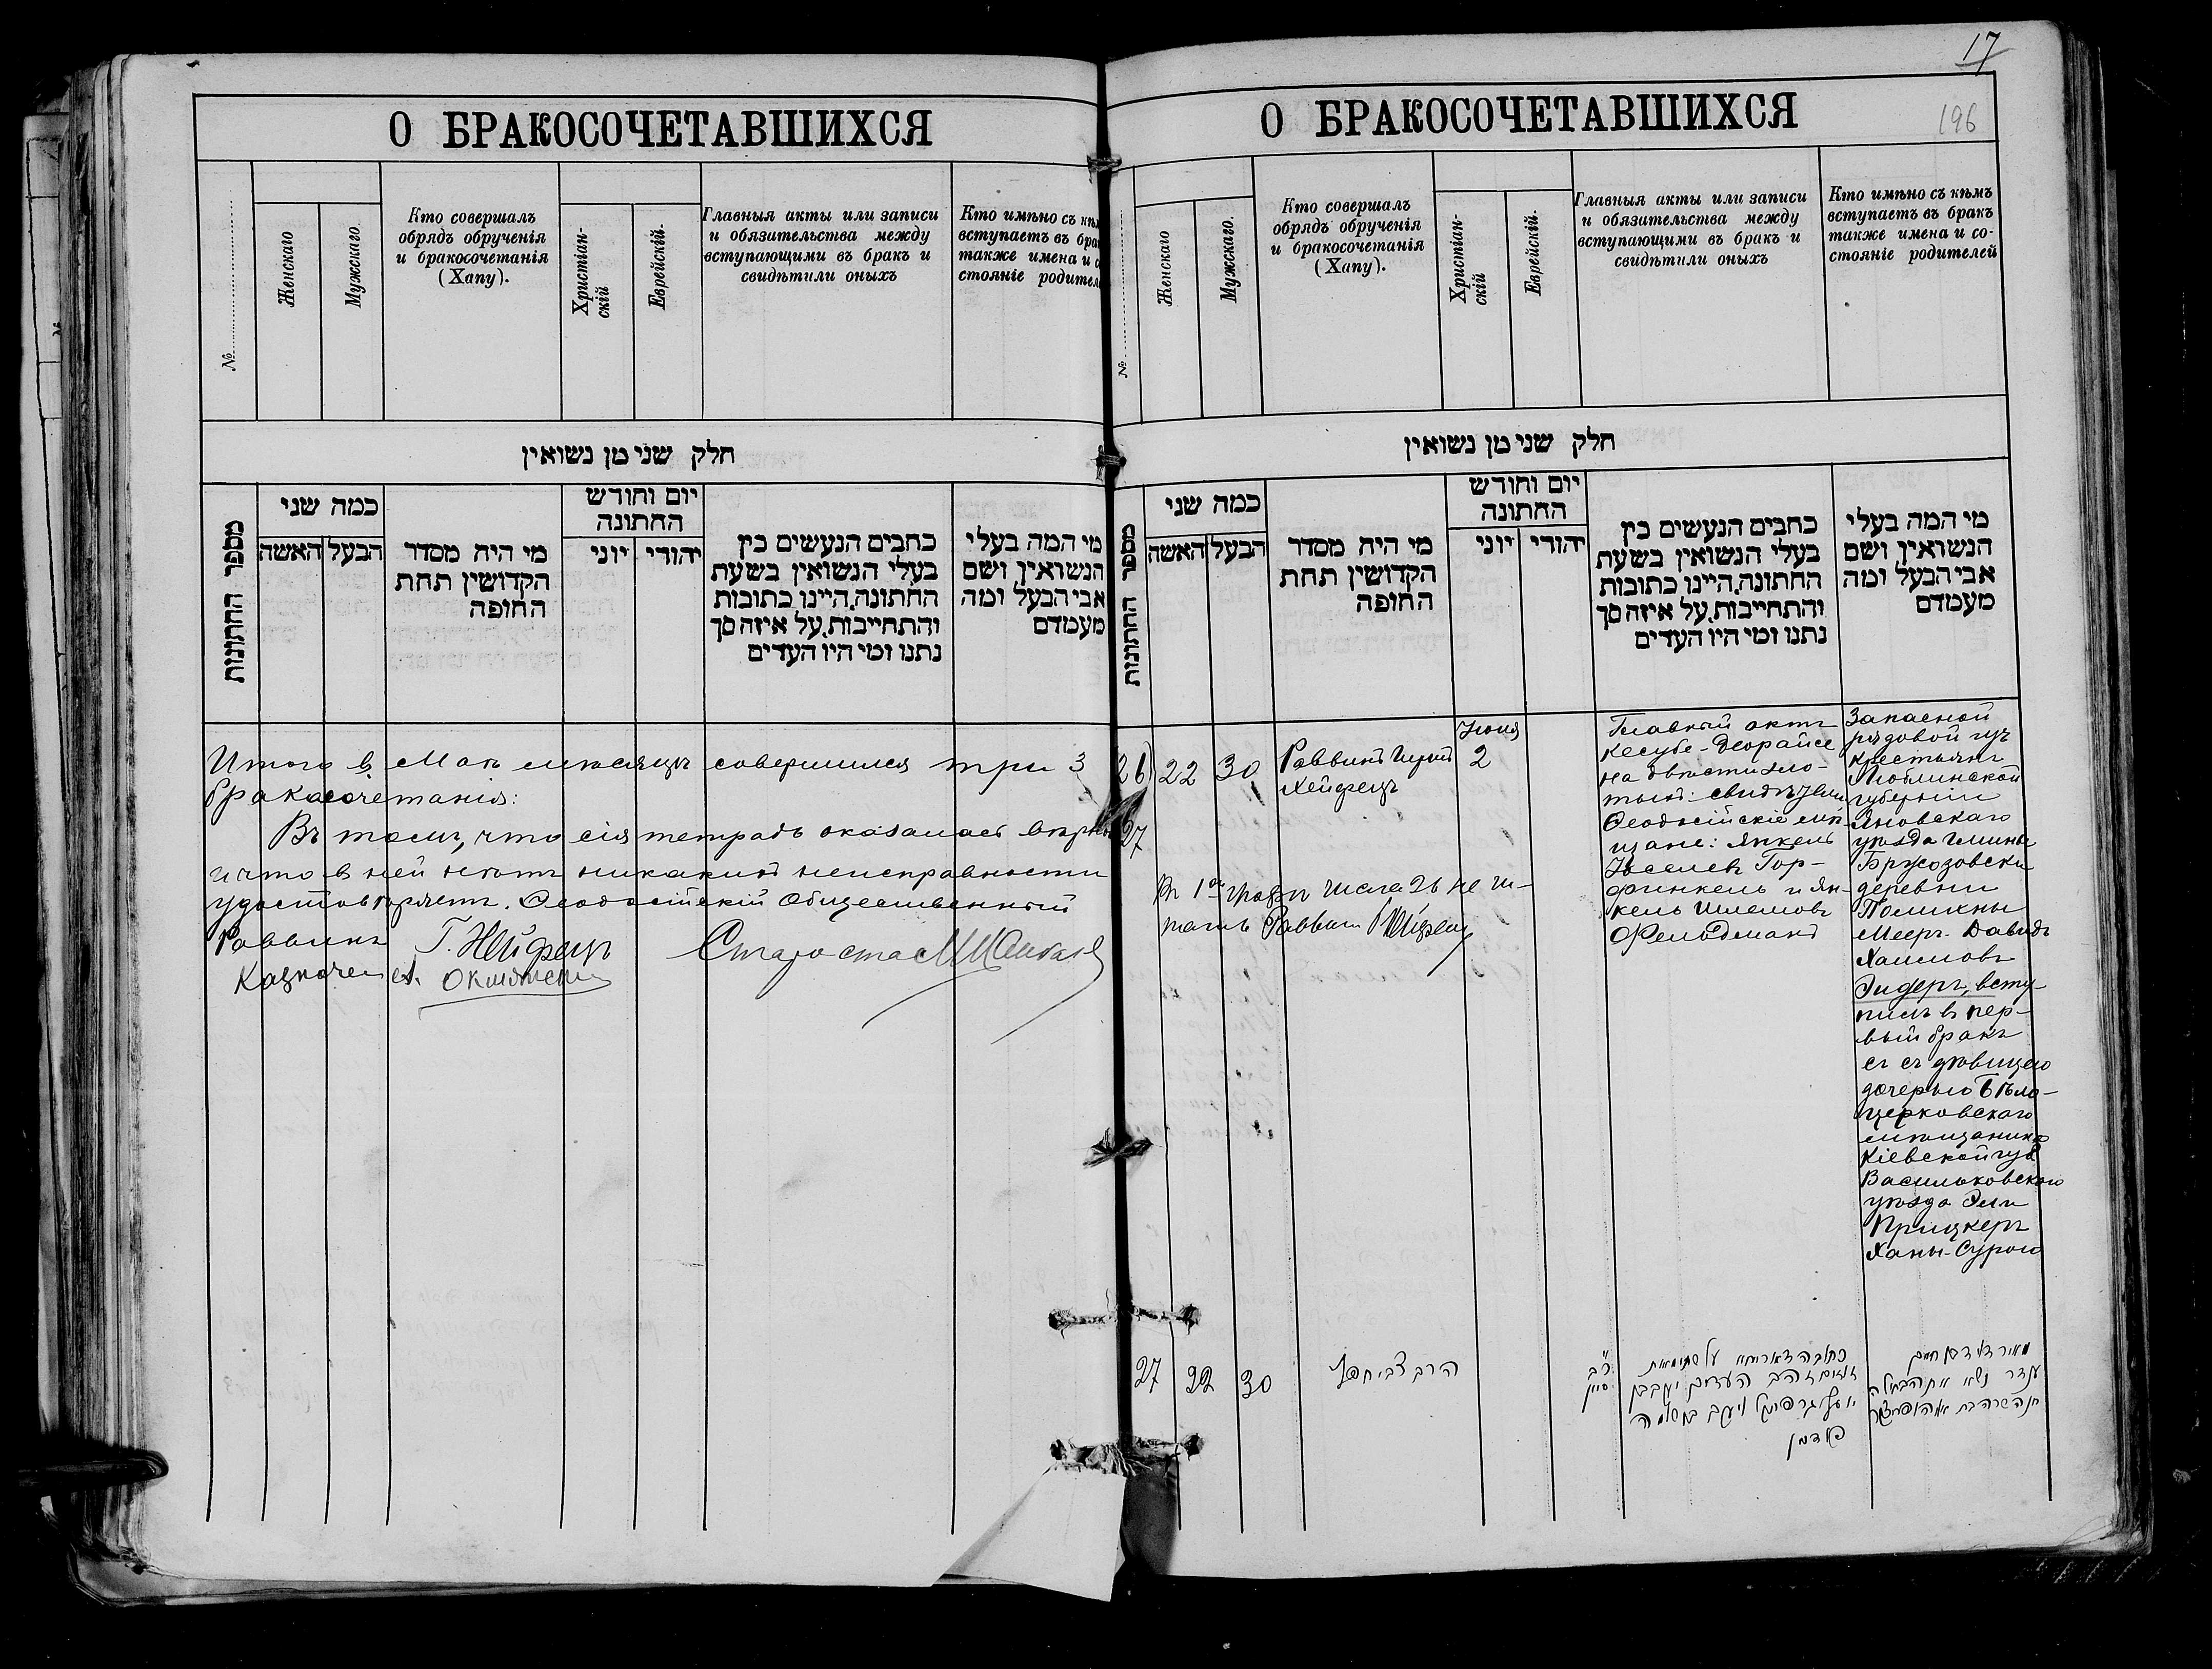 О БРАКОСОЧЕТАВШИХСЯ
№
Женскаго
Мужскаго.
Кто совершалъ
обрядъ обрученія
и бракосочетанія
(Хапу).
Христіан-
скій
Еврейскій.
Главныя акты или записи
и обязательства между
вступающими въ бракъ и
свидѣтили оныхъ
Кто имѣно съ
вступаетъ въ
также имена и
стояніе
חלק שני מן נשואין
מספר החתונות
כמה שני
האשה
הבעל
מי היה מסדר
הקדושין תחת
החופה
יום וחודש
החתונה
יוני
יהודי
כתבים הנעשים בין
בעלי הנשואין בשעת
החתונה, היינו כתובות
והתחייבות, על איזה סך
נתנו ומי היו העדים
מי המה בעלי
הנשואין ושם
אבי הבעל ומה
מעמדם
Итого в Маѣ мѣсяцѣ совершился три 3
бракосочетанія:
Въ томъ, что сія тетрадь оказалась
и что в ней нѣтъ никакихъ неисправности
удостовѣряетъ. Ѳеодосійскій Общественный
Раввинъ Г. Хейфецъ Староста
Казначей
17
196
О БРАКОСОЧЕТАВШИХСЯ
№
Женскаго
Мужскаго.
Кто совершалъ
обрядъ обрученія
и бракосочетанія
(Хапу).
Христіан-
скій
Еврейскій.
Главныя акты или записи
и обязательства между
вступающими въ бракъ и
свидѣтили оныхъ
Кто имѣно съ кѣмъ
вступаетъ въ бракъ
также имена и со-
стояніе родителей
חלק שני מן נשואין
מספר החתונות
כמה שני
האשה
הבעל
מי היה מסדר
הקדושין תחת
החופה
יום וחודש
החתונה
יוני
יהודי
כתבים הנעשים בין
בעלי הנשואין בשעת
החתונה, היינו כתובות
והתחייבות, על איזה סך
נתנו ומי היו העדים
מי המה בעלי
הנשואין ושם
אבי הבעל ומה
מעמדם
26)
27
22
30
Раввинъ
Хейфецъ
Іюня
2
Главный актъ
кесубе-деорайсе
на двѣсти зло-
тыхъ:
Ѳеодосійскіе мѣ-
щане: Янкель
Іоселевъ Гор-
финкель и Ян-
кель Шлемовъ
Фельдманъ
Запасной
рядовой изъ
крестьянъ
Люблинской
губерніи
Яновскаго
уѣзда гмины
деревни
Мееръ-Давидъ
Хаимовъ
Эидеръ, всту-
пилъ в пер-
вый бракъ
съ съ дѣвицею
дочерью Бѣло-
церковскаго
мѣщанина
Кіевской губ
Васильковскаго
уѣзда Эли
Прицкеръ
Ханы-Сурою
В 1ой графѣ числа 26 не чи-
тать Раввин Хейфец
27
22
30
הרב צבי חפץ
י״ב
סיון
כתובה דאורייתא על שתי מאות
זהובים העדים יעקב בן
יוסף גרפינקל ויעקב בן שלמה
פלדמן
מאיר דוד בן חיים
ענדר נשא את הבתולה
חנה שרה בת